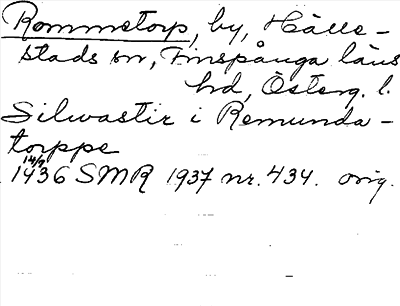 Rommetorp, by, Hälle-
stads sn, Finspånga läns
hd, Österg. l.
Silvastir i Remunda-
torppe
14/9
1436 SMR 1937 nr. 434. orig.